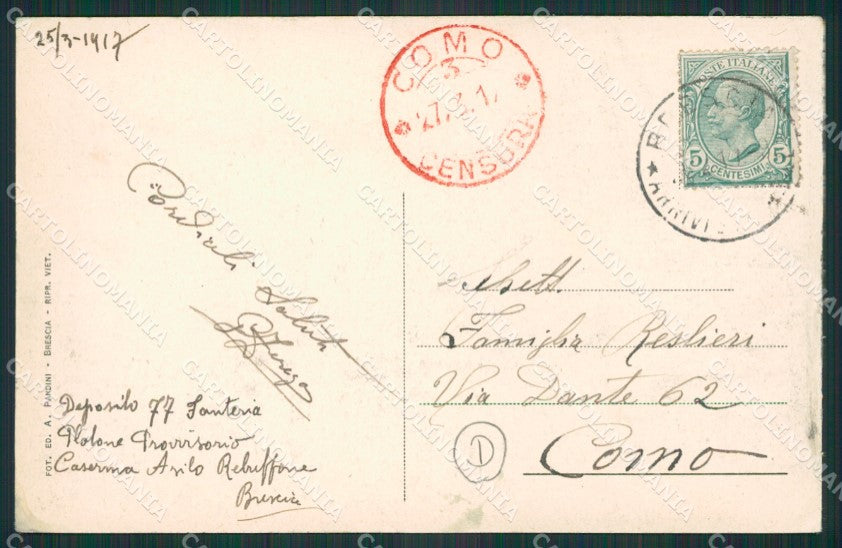 25/3-1917
COMO
3
27.3.17
CENSURA
POSTE ITALIANE
5 5
CENTESIMI
ARRIVI
Cordiali
Saluti
Spett.
Famiglia Reslieri
Via Dante 62
Como
D
Deposito 77 Fanteria
Plotone Provvisorio
Caserma Asilo Rebuffone
Brescia
FOT. ED. A. PANDINI - BRESCIA - RIPR. VIET.
CARTOLINOMANIA